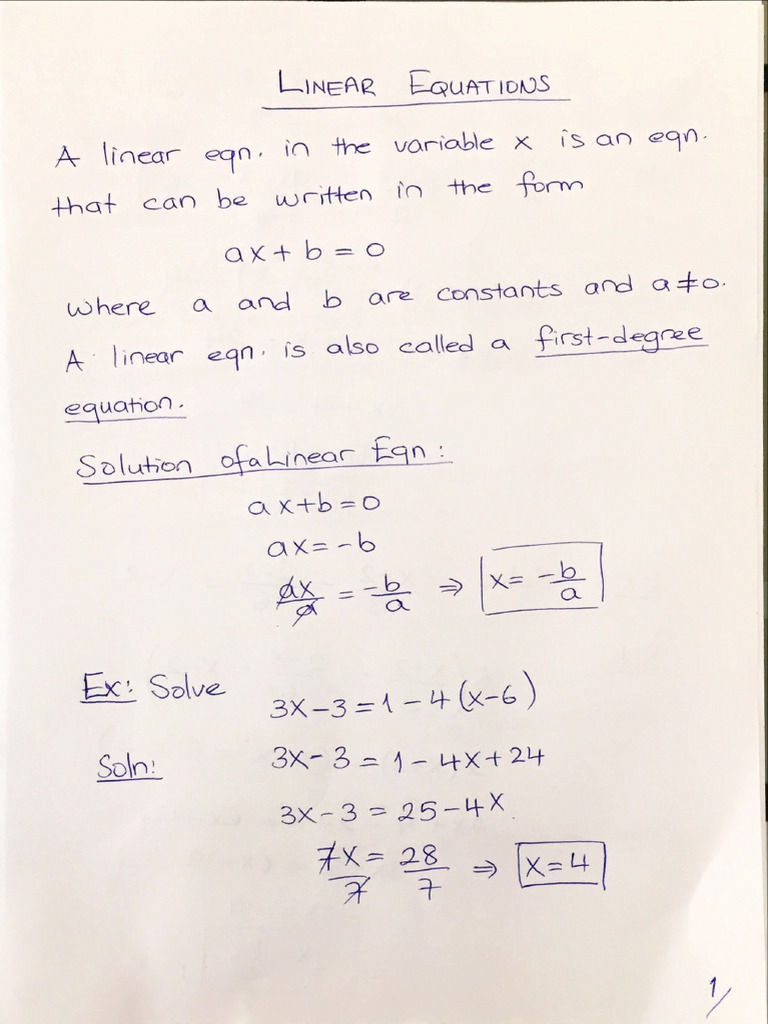 LINEAR EQUATIONS
A linear eqn. in the variable x is an eqn.
that can be written in the form
ax + b = 0
where a and b are constants and a≠0.
A linear eqn. is also called a first-degree
equation.
Solution of a Linear Eqn:
ax+b=0
ax=-b
ax/a = -b/a ⇒ x= -b/a
Ex: Solve 3x-3=1-4(x-6)
Soln: 3x-3=1-4x+24
3x-3=25-4x
7x/7 = 28/7 ⇒ x=4
1/